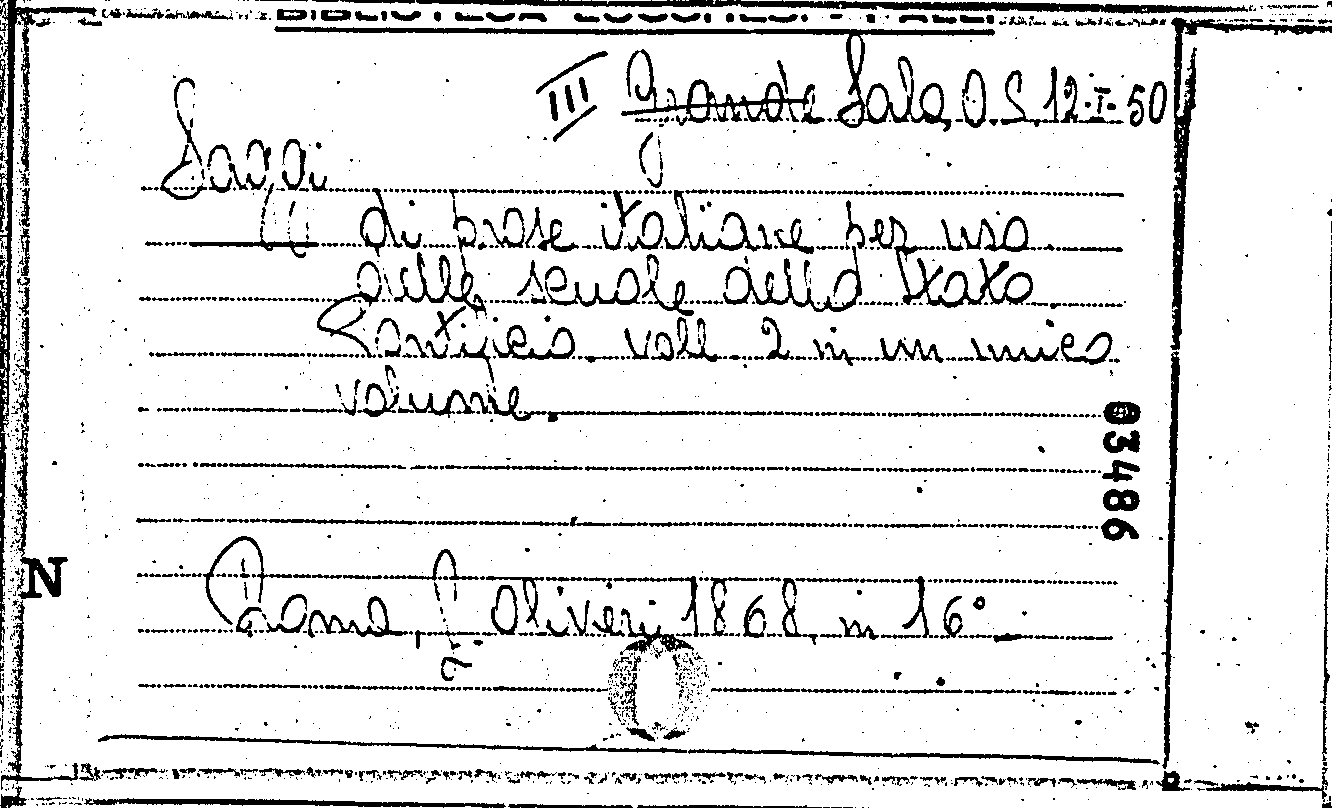 III Grande Sala, O. S. 12-I-50
Saggi
di prose italiane per uso
delle scuole dello Stato
Pontificio. voll. 2 in un unico
volume.
03486
N
Roma, Olivieri, 1868, in 16°